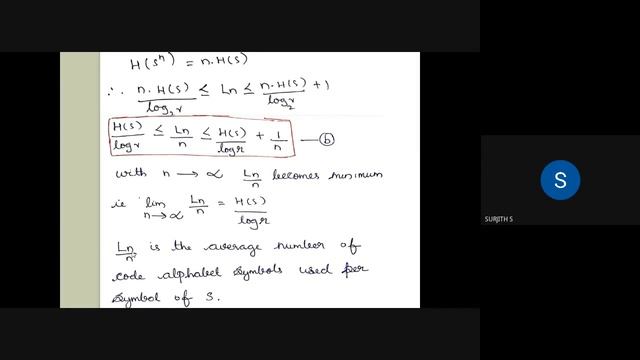 H(Sⁿ) = n.H(S)
∴ n.H(S)/log₂r ≤ Ln ≤ n.H(S)/log₂r + 1
H(S)/logr ≤ Ln/n ≤ H(S)/logr + 1/n — (b)
with n → ∝ Ln/n becomes minimum
ie lim n→∝ Ln/n = H(S)/logr
Ln/n is the average number of
code alphabet symbols used per
symbol of S.
S
SURJITH S